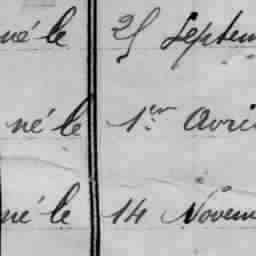 né le 25 Septem
né le 1er Avri
né le 14 Novem